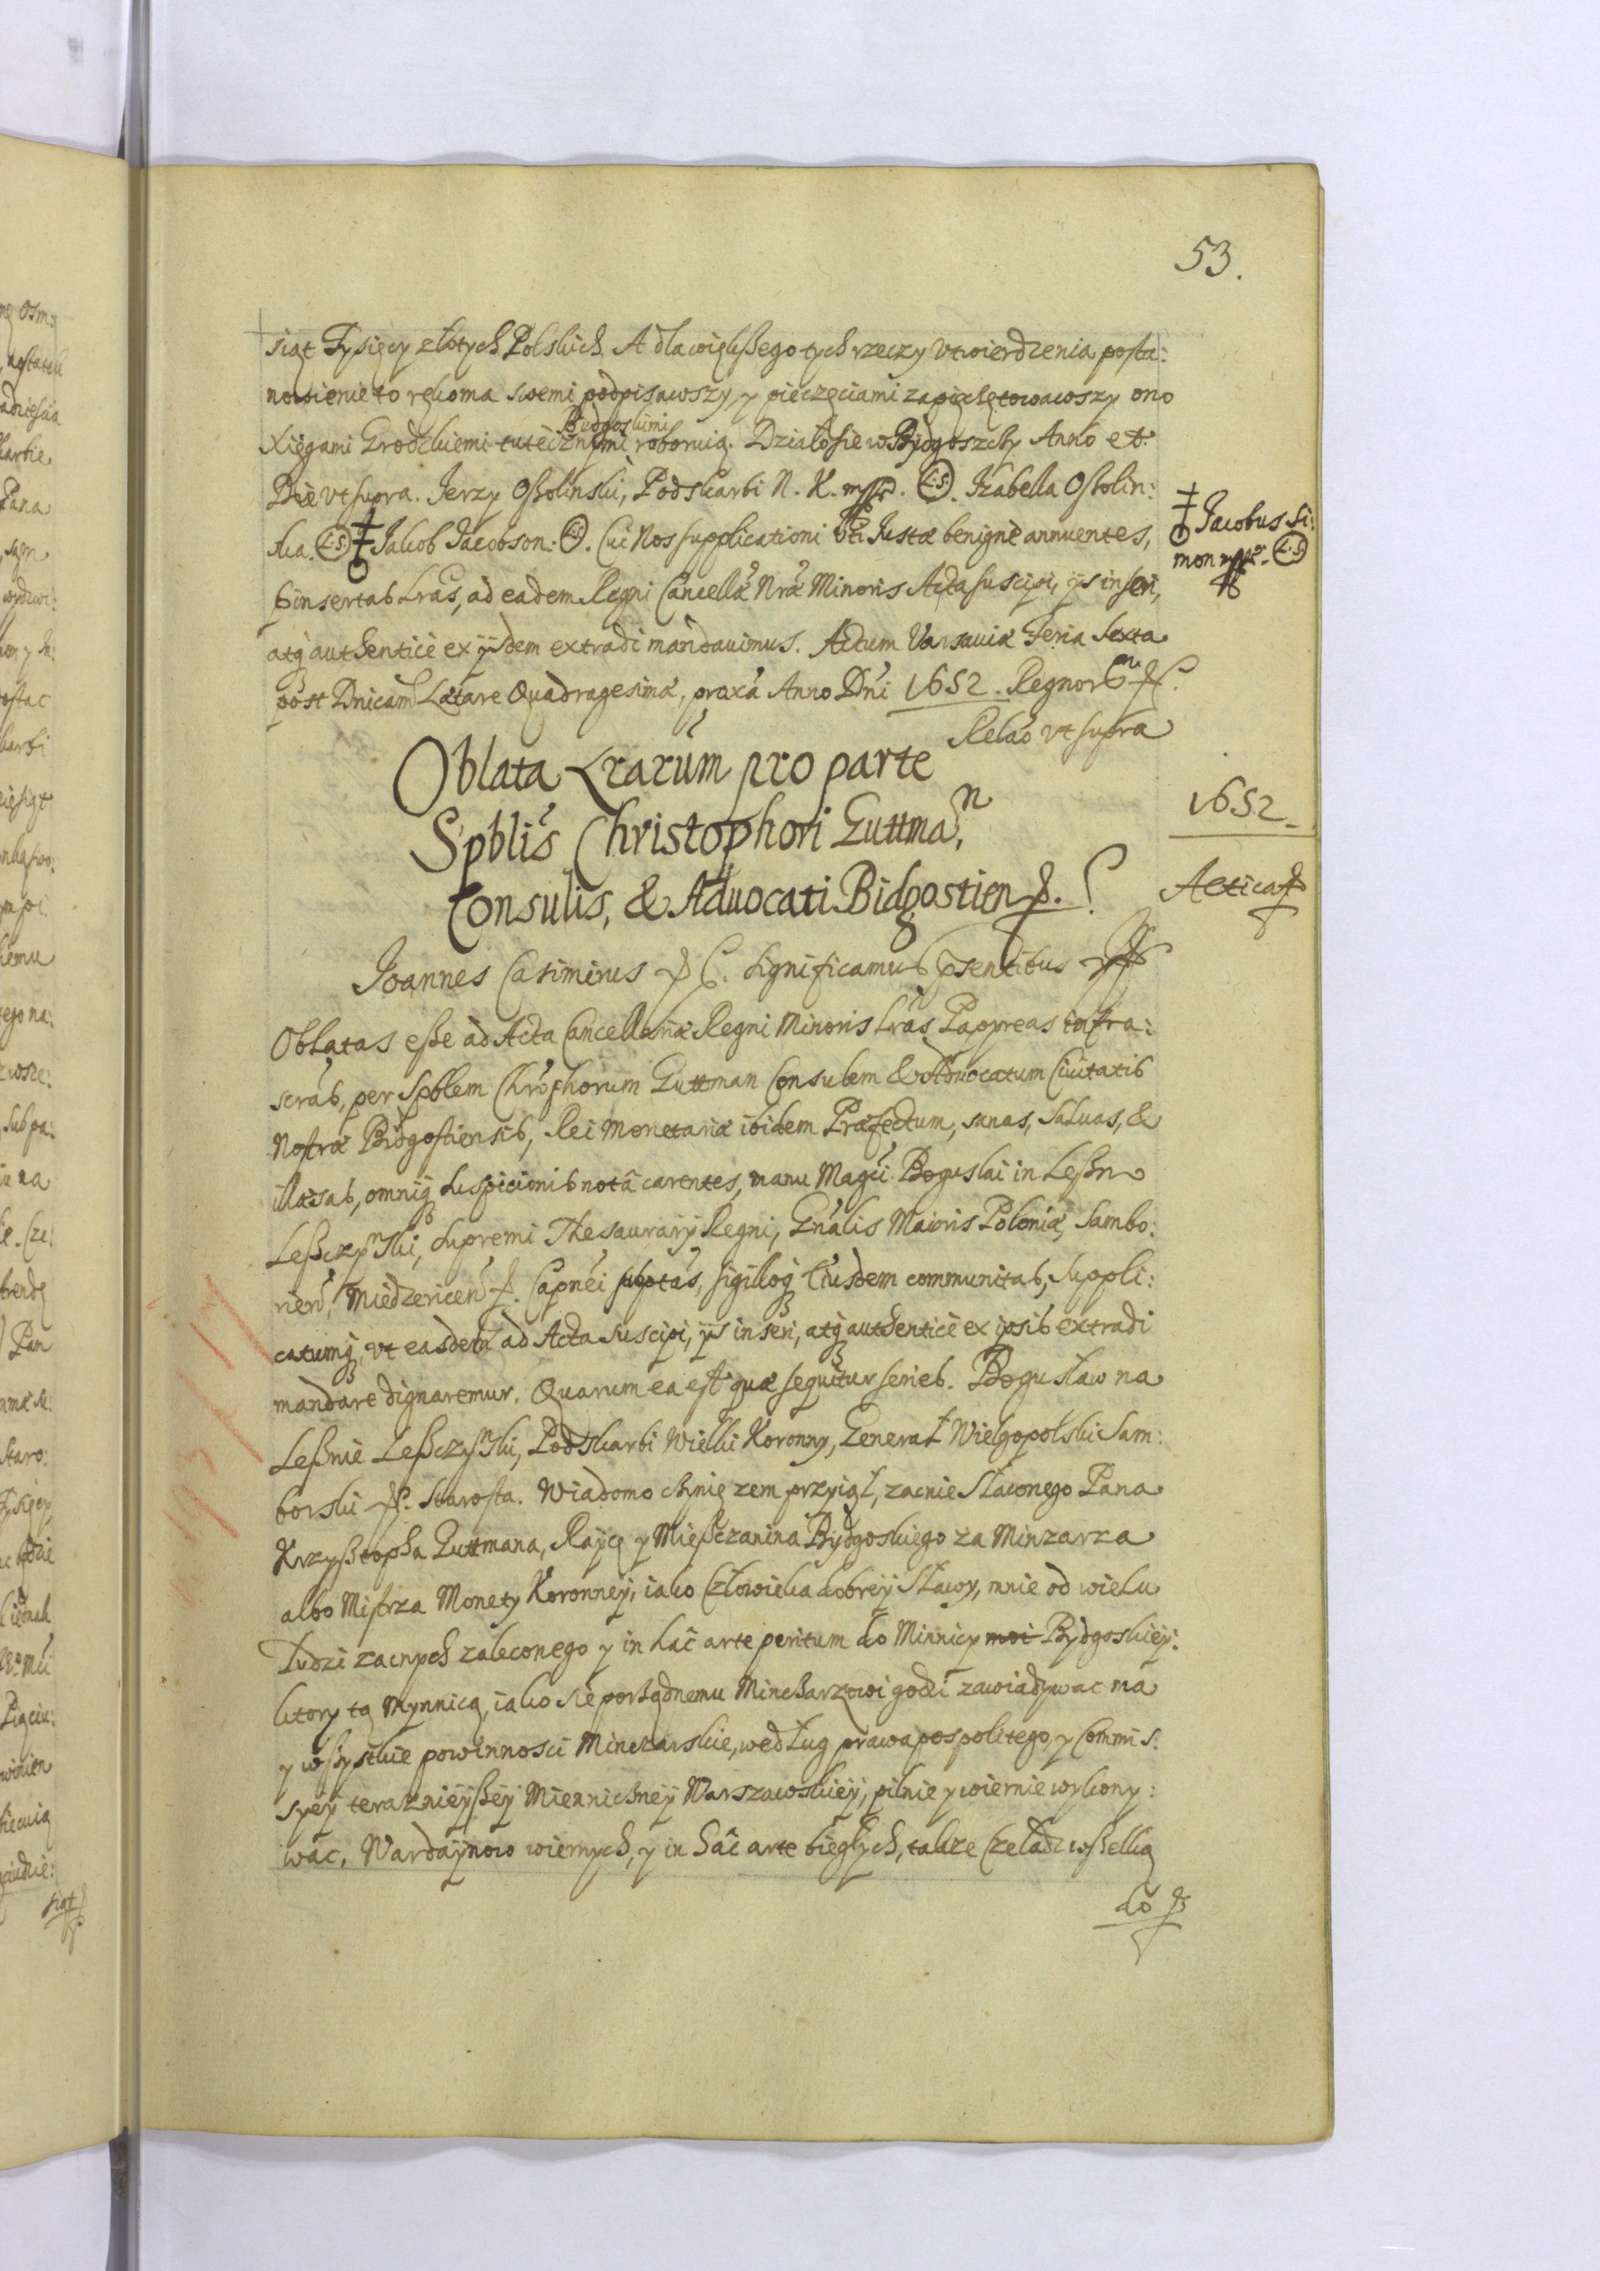 53.
siąt Tysięcy złotych Polskich. A dla więkßego tych rzeczy utwierdzenia posta:
nowienie to rękoma swemi podpisawszy, y pieczęciami zapieczętowawszy ono
Xięgami Grodzkiemi tutecznymi Bydgoskimi roboruią. Działo sie w Bydgoszczy Anno et
Die vt supra. Jerzy Oßolinski, Podskarbi N. K. L.S. Izabella Oßolin:
ska. L.S. Jakob Jacobson. L.S. Cui Nos supplicationi vti Justæ benignè annuentes,
Jacobus Si:
mon L.S.
pinsertas Lras, ad eadem Regni Cancellæ Nræ Minoris Acta suscipi, ijs inseri,
atq authenticè ex ijsdem extradi mandauimus. Actum Varsauiæ Feria Sexta
post Dnicam Lætare Quadragesimæ, proxa Anno Dni 1652. Regnor
Relao vt supra
Oblata Lrarum pro parte
Spblis Christophori Guttman,
Consulis, & Aduocati Bidgostien
1652
Joannes Casimirus Significamus psentibus
Oblatas esse ad Acta Cancellariæ Regni Minoris Lras Pappreas infra:
scras, per Spblem Chrophorum Guttman Consulem & Aduocatum Ciuitatis
Nostræ Bidgostiensis, Rei Monetariæ ibidem Præfectum, sanas, saluas, &
illæsas, omniq suspicionis notâ carentes, manu Magci Boguslai in Leßno
Leßczynski, Supremi Thesaurarij Regni, Gnalis Maioris Poloniæ, Sambo:
rien, Miedzericen Capnei subptas, sigilloq Eiusdem communitas, suppli:
catumq, vt easdem ad Acta suscipi, ijs inseri, atq authenticè ex ipsis extradi
mandare dignaremur. Quarum ea est quæ sequitur series. Bogusław na
Leßnie Leßczynski, Podskarbi Wielki Koronny, Generał Wielgopolski Sam:
borski Starosta. Wiadomo czynię zem przyiął, zacnie Sławonego Pana
Krzyßtopha Guttmana, Raycę y Mießczanina Bydgoskiego za Minzarza
albo Mistrza Monety Koronney, iako Człowieka dobrey Sławy, mnie od wielu
Ludzi zacnych zaleconego y in hac arte peritum do Minnicy moi Bydgoskiey:
ktory tą Mynnicą, iako sie porządnemu Mincharzowi godzi zawiadywac ma
y wßystkie powinnosci Minczarskie, według prawa pospolitego, y Commis:
syey teraznieyßey Mienniczney Warszawskiey, pilnie y wiernie wykony:
wac, Wardaynow wiernych, y in hac arte biegłych, takze Czeladz wßelką
do